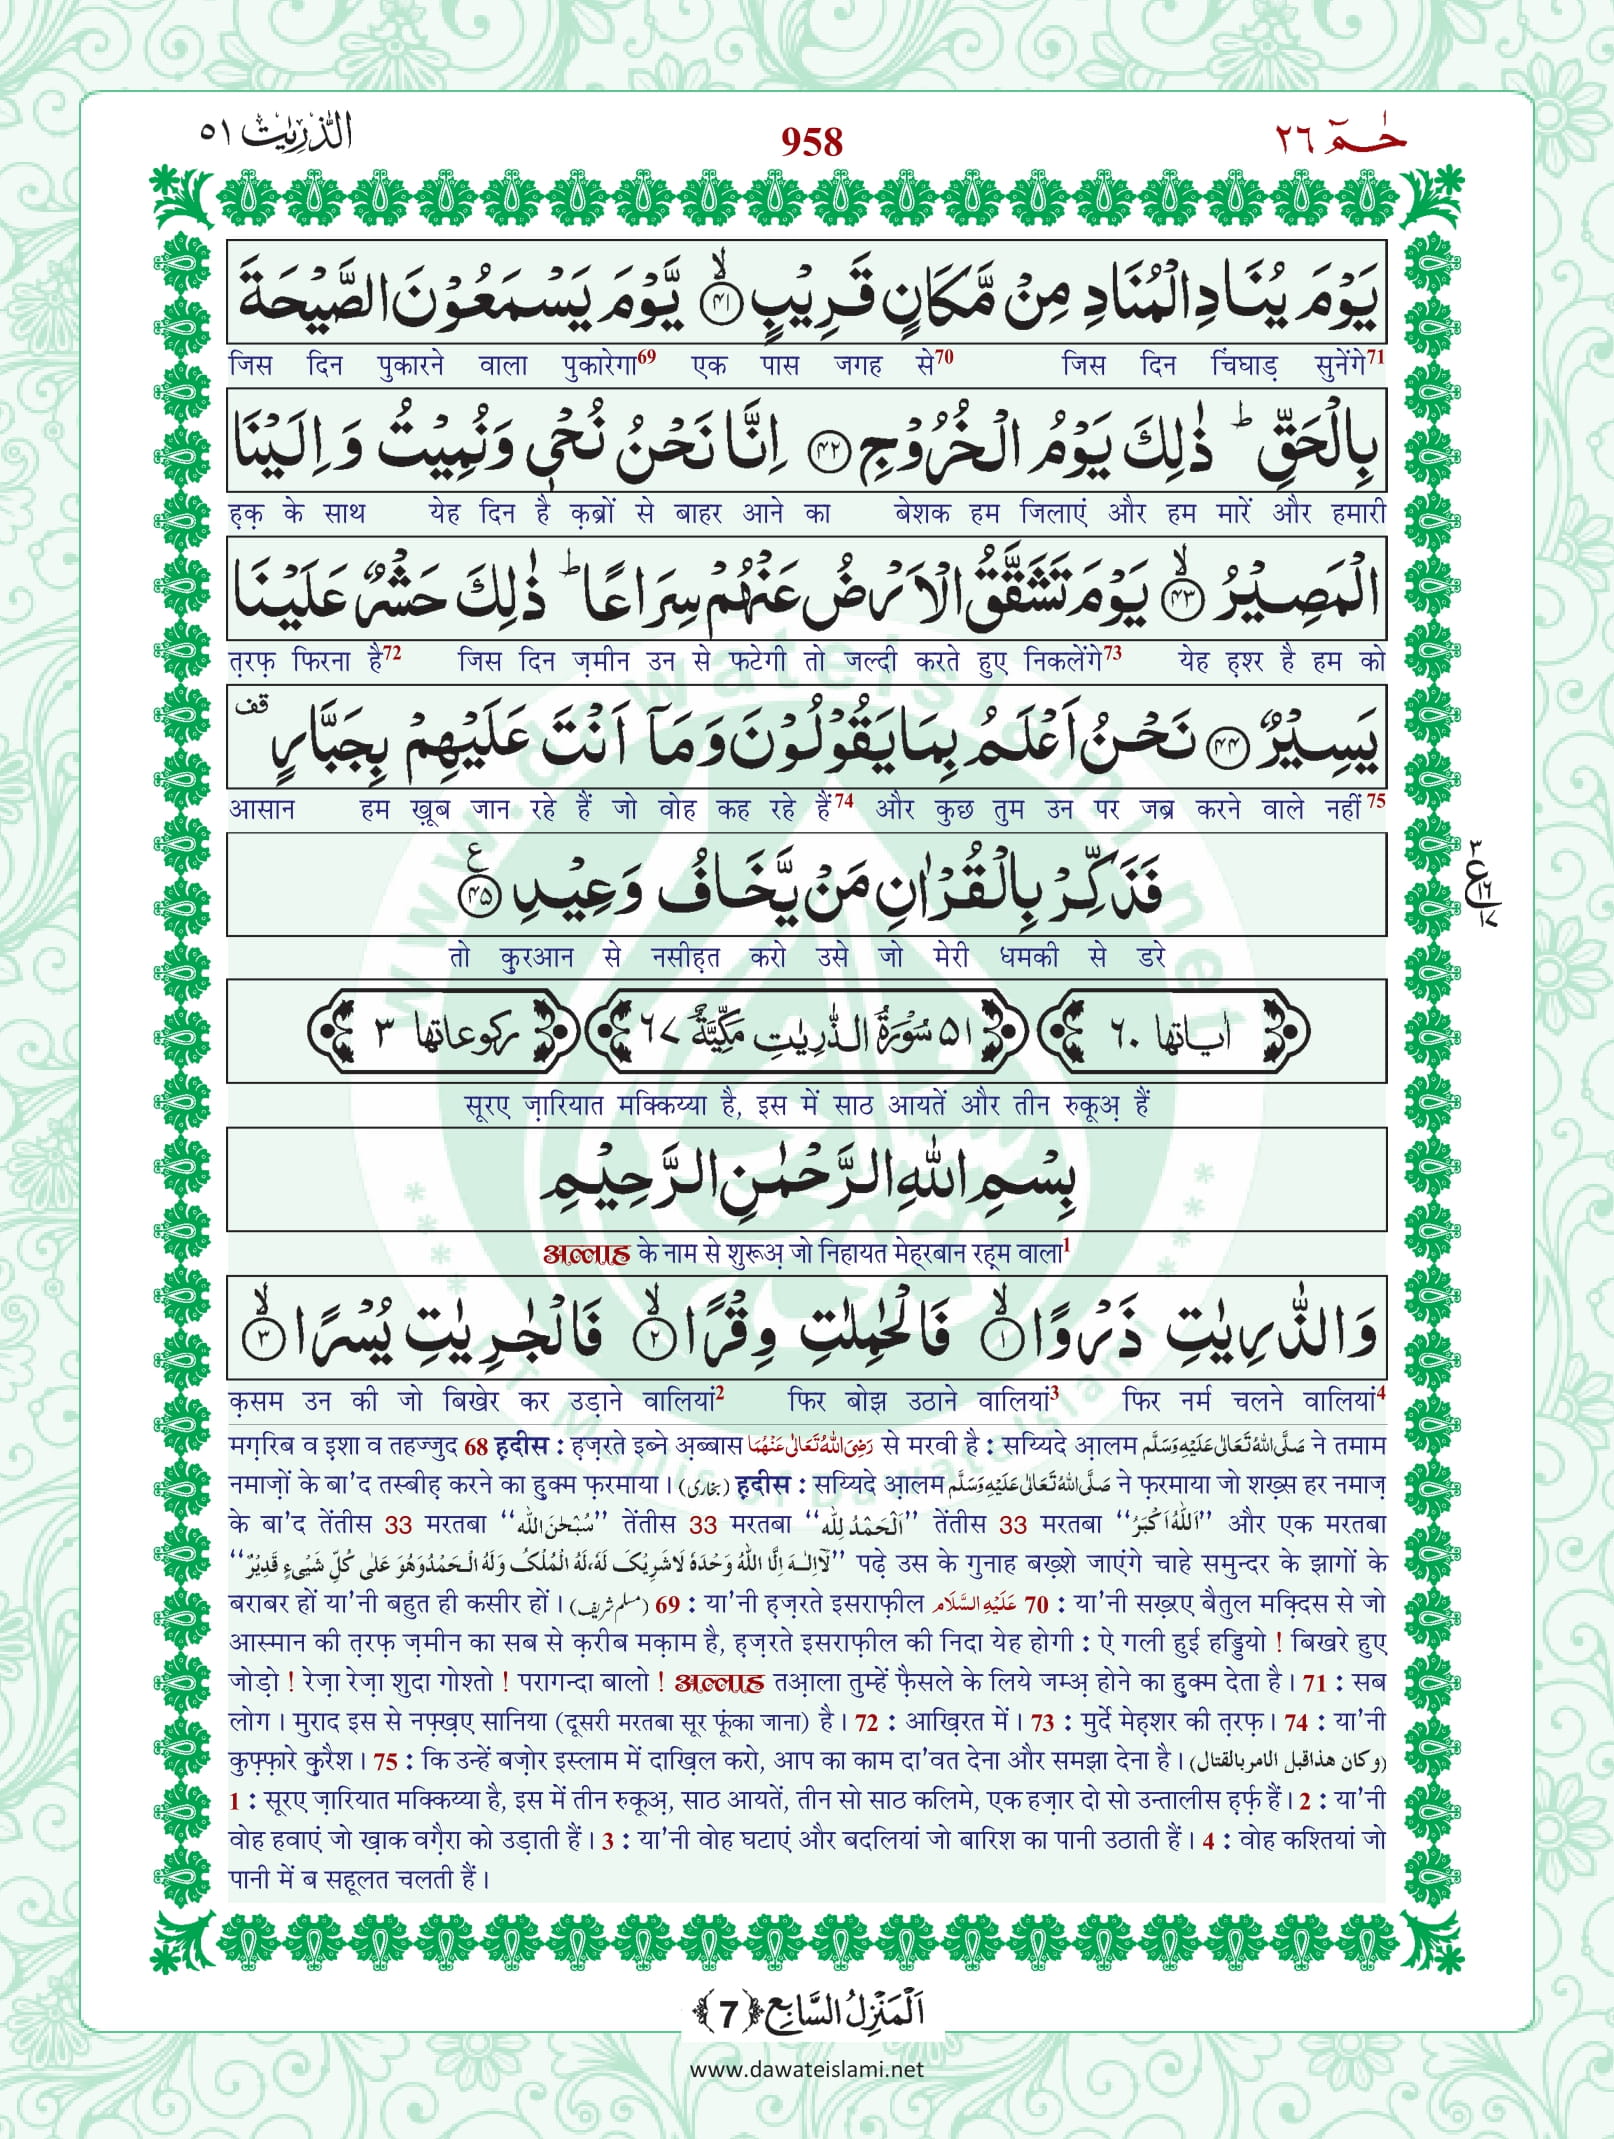 حٰمٓ ٢٦
958
الذّٰرِیٰت ٥١
یَوْمَ یُنَادِ الْمُنَادِ مِنْ مَّكَانٍ قَرِیْبٍۙ﴿۴۱﴾ یَّوْمَ یَسْمَعُوْنَ الصَّیْحَةَ
जिस दिन पुकारने वाला पुकारेगा69 एक पास जगह से70 जिस दिन चिंघाड़ सुनेंगे71
بِالْحَقِّؕ ذٰلِكَ یَوْمُ الْخُرُوْجِ﴿۴۲﴾ اِنَّا نَحْنُ نُحْیٖ وَنُمِیْتُ وَاِلَیْنَا
ह़क़ के साथ येह दिन है क़ब्रों से बाहर आने का बेशक हम जिलाएं और हम मारें और हमारी
الْمَصِیْرُۙ﴿۴۳﴾ یَوْمَ تَشَقَّقُ الْاَرْضُ عَنْهُمْ سِرَاعًاؕ ذٰلِكَ حَشْرٌ عَلَیْنَا
त़रफ़ फिरना है72 जिस दिन ज़मीन उन से फटेगी तो जल्दी करते हुए निकलेंगे73 येह ह़श्र है हम को
یَسِیْرٌ﴿۴۴﴾ نَحْنُ اَعْلَمُ بِمَا یَقُوْلُوْنَ وَمَاۤ اَنْتَ عَلَیْهِمْ بِجَبَّارٍ قف
आसान हम ख़ूब जान रहे हैं जो वोह कह रहे हैं74 और कुछ तुम उन पर जब्र करने वाले नहीं75
فَذَكِّرْ بِالْقُرْاٰنِ مَنْ یَّخَافُ وَعِیْدِ﴿۴۵﴾ ع
٣ ع ١٦ ١٧
तो क़ुरआन से नसीह़त करो उसे जो मेरी धमकी से डरे
اٰیاتها ٦٠ ٥١ سُوْرَةُ الذّٰرِیٰتِ مَكِّیَّةٌ ٦٧ ركوعاتها ٣
सूरए ज़ारियात मक्किय्या है, इस में साठ आयतें और तीन रुकूअ़ हैं
بِسْمِ اللّٰهِ الرَّحْمٰنِ الرَّحِیْمِ
अल्लाह के नाम से शुरूअ़ जो निहायत मेह्रबान रह़्म वाला1
وَالذّٰرِیٰتِ ذَرْوًاۙ﴿۱﴾ فَالْحٰمِلٰتِ وِقْرًاۙ﴿۲﴾ فَالْجٰرِیٰتِ یُسْرًاۙ﴿۳﴾
क़सम उन की जो बिखेर कर उड़ाने वालियां2 फिर बोझ उठाने वालियां3 फिर नर्म चलने वालियां4
मग़रिब व इशा व तहज्जुद 68 ह़दीस : ह़ज़रते इब्ने अ़ब्बास رَضِیَ اللّٰهُ تَعَالٰی عَنْهُمَا से मरवी है : सय्यिदे आ़लम صَلَّی اللّٰهُ تَعَالٰی عَلَیْهِ وَسَلَّم ने तमाम
नमाज़ों के बा'द तस्बीह़ करने का ह़ुक्म फ़रमाया। (بخاری) ह़दीस : सय्यिदे आ़लम صَلَّی اللّٰهُ تَعَالٰی عَلَیْهِ وَسَلَّم ने फ़रमाया जो शख़्स हर नमाज़
के बा'द तेंतीस 33 मरतबा “سُبْحٰنَ اللّٰه” तेंतीस 33 मरतबा “اَلْحَمْدُ لِلّٰه” तेंतीस 33 मरतबा “اَللّٰهُ اَكْبَرُ” और एक मरतबा
“لَاۤ اِلٰـهَ اِلَّا اللّٰهُ وَحْدَهٗ لَا شَرِیْكَ لَهٗ، لَهُ الْمُلْكُ وَلَهُ الْحَمْدُ وَهُوَ عَلٰی كُلِّ شَیْیءٍ قَدِیْرٌ” पढ़े उस के गुनाह बख़्शे जाएंगे चाहे समुन्दर के झागों के
बराबर हों या'नी बहुत ही कसीर हों। (مسلم شریف) 69 : या'नी ह़ज़रते इसराफ़ील عَلَیْهِ السَّلَام 70 : या'नी सख़्रए बैतुल मक़्दिस से जो
आस्मान की त़रफ़ ज़मीन का सब से क़रीब मक़ाम है, ह़ज़रते इसराफ़ील की निदा येह होगी : ऐ गली हुई हड्डियो ! बिखरे हुए
जोड़ो ! रेज़ा रेज़ा शुदा गोश्तो ! परागन्दा बालो ! अल्लाह तआ़ला तुम्हें फ़ैसले के लिये जम्अ़ होने का ह़ुक्म देता है। 71 : सब
लोग। मुराद इस से नफ़्ख़ए सानिया (दूसरी मरतबा सूर फूंका जाना) है। 72 : आख़िरत में। 73 : मुर्दे मेह़शर की त़रफ़। 74 : या'नी
कुफ़्फ़ारे क़ुरैश। 75 : कि उन्हें बज़ोर इस्लाम में दाख़िल करो, आप का काम दा'वत देना और समझा देना है। (وكان هذا قبل الامر بالقتال)
1 : सूरए ज़ारियात मक्किय्या है, इस में तीन रुकूअ़, साठ आयतें, तीन सो साठ कलिमे, एक हज़ार दो सो उन्तालीस ह़र्फ़ हैं। 2 : या'नी
वोह हवाएं जो ख़ाक वग़ैरा को उड़ाती हैं। 3 : या'नी वोह घटाएं और बदलियां जो बारिश का पानी उठाती हैं। 4 : वोह कश्तियां जो
पानी में ब सहूलत चलती हैं।
اَلْمَنْزِلُ السَّابِع ﴿7﴾
www.dawateislami.net